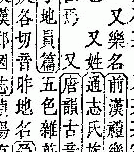 又樂名前漢禮樂
又姓通志氏族
唐韻古音
地員篇五色雜
各切音昨地名
國志蕩